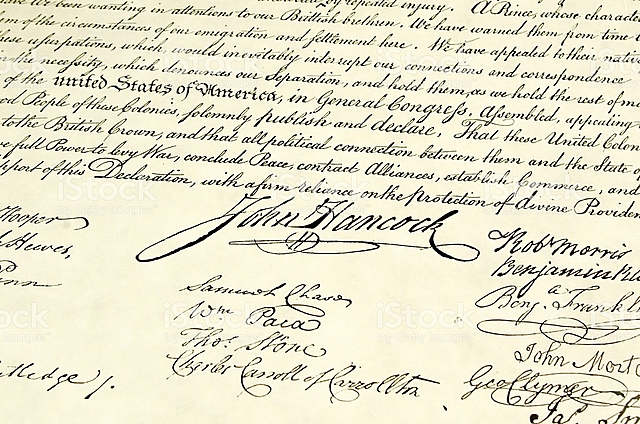 by repeated injury. A Prince, whose charact
been wanting in attentions to our Brittish brethren. We have warned them from time
of the circumstances of our emigration and settlement here. We have appealed to their native
these usurpations, which, would inevitably interrupt our connections and correspondence
the necessity, which denounces our Separation, and hold them, as we hold the rest of m
of the united States of America, in General Congress, Assembled, appealing
People of these Colonies, solemnly publish and declare, That these United Colon
to the British Crown, and that all political connection between them and the State of
full Power to levy War, conclude Peace, contract Alliances, establish Commerce, and
pport of this Declaration, with a firm reliance on the Protection of divine Providen
John Hancock
Hooper
Hewes,
Penn
Samuel Chase
Wm Paca
Thos. Stone
Charles Carroll of Carrollton
Robt Morris
Benjamin Ru
Benj. Frankl
John Mort
Geo Clymer
Jas. Sm
tledge
iStock